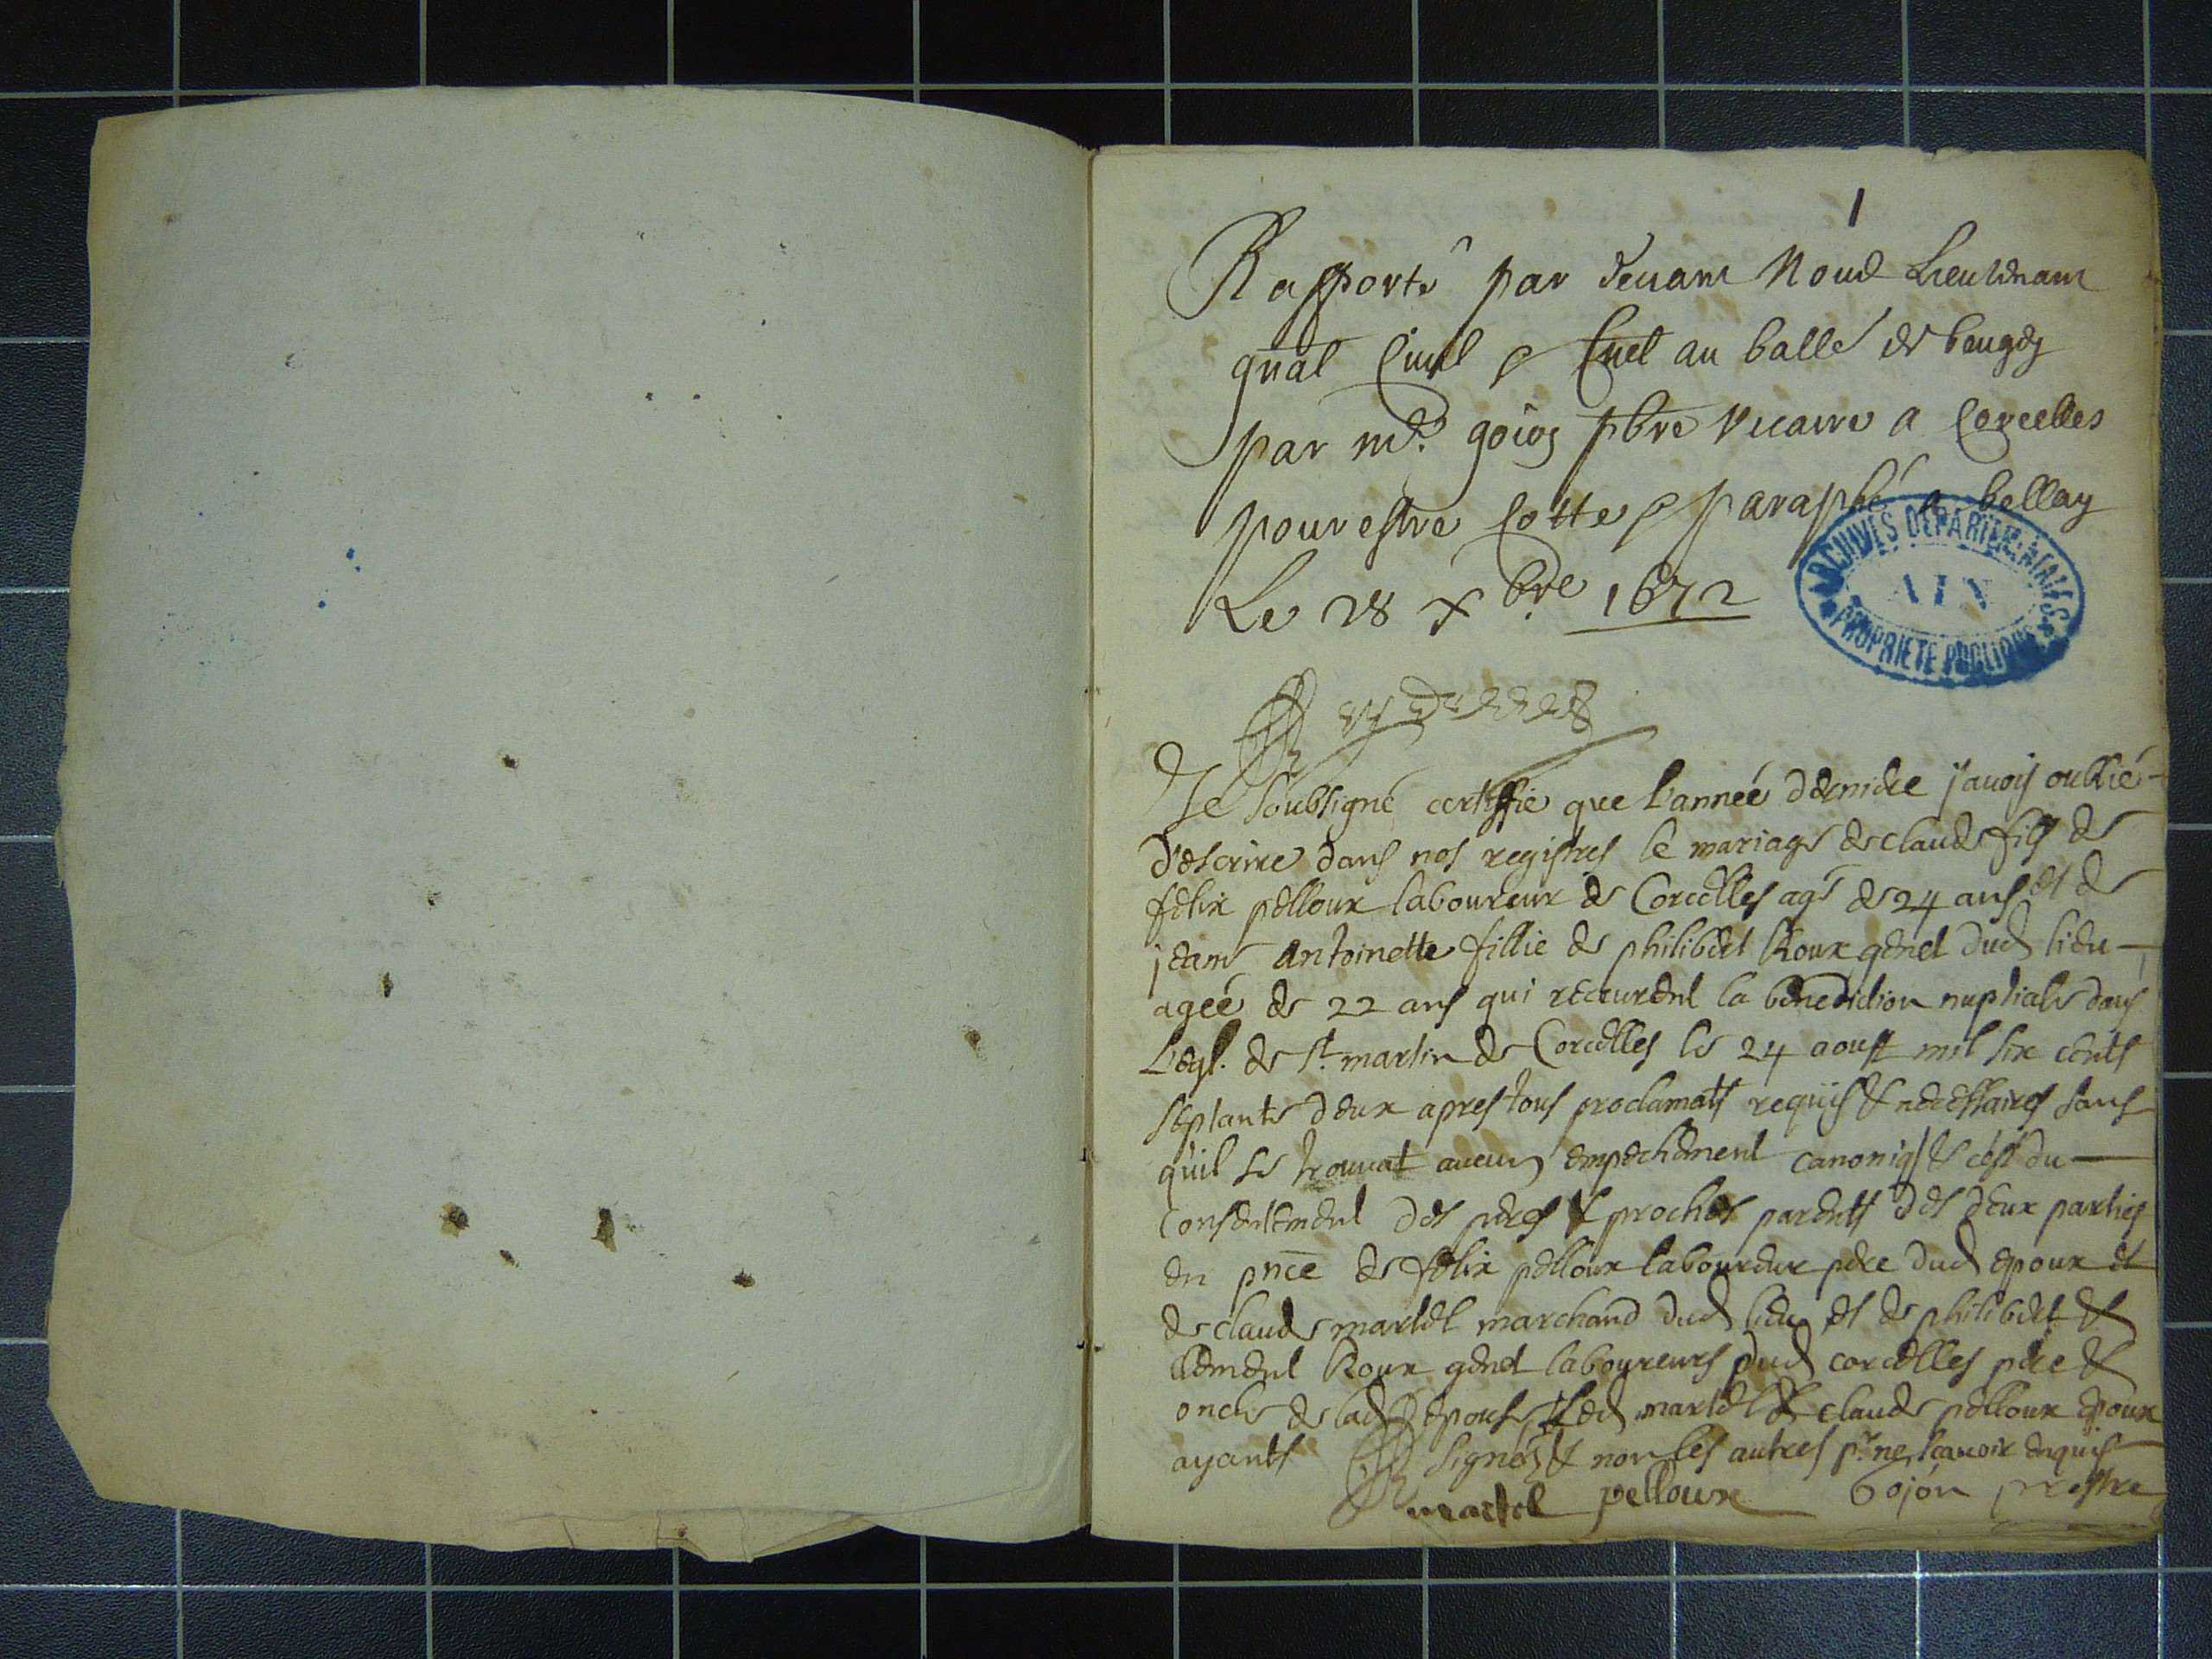 1
Rapporté par devant Nous Lieutenant
gñal Civil & Cnel au balle de beugey
par mre goion pbre vicaire a Corcelles
pour estre Cotte & paraphé a bellay
Le 28 Xbre 1672
ARCHIVES DEPARTEMENTALES
AIN
PROPRIETE PUBLIQUE
Je soubsigné certiffie que l'année derniere j'avois oublié
d'escrire dans nos registres le mariage de claude fils de
felix pelloux laboureur de Corcelles agé de 24 ans et de
jeane Antoinette fillie de philibert Roux genet dud lieu
ageé de 22 ans qui receurent la benediction nuptiale dans
L'egl. de St. martin de Corcelles le 24 aoust mil six cents
septante deux apres tous proclamats requis & necessaires sans
qu'il se trouvat aucun empechement canoniq & c'est du
consentement des peres & proches parents des deux parties
en pnce de felix pelloux laboureur pere dud epoux et
de claude martel marchand dud lieu et de philibert &
clement Roux genet laboureurs dud corcelles pere &
oncle de lad epouse led martel & claude pelloux epoux
ayants signés & non les autres pr ne scavoir enquis
martel pelloux Gojon prestre